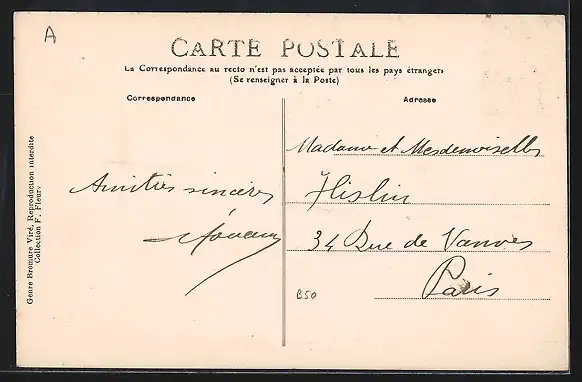 A
CARTE POSTALE
La Correspondance au recto n'est pas acceptée par tous les pays étrangers
(Se renseigner à la Poste)
Correspondance
Adresse
Genre Bromure Viré, Reproduction interdite
Collection F. Fleury
Amitiés sincères
Madame et Mesdemoiselles
Hislin
34 Rue de Vanves
Paris
B50